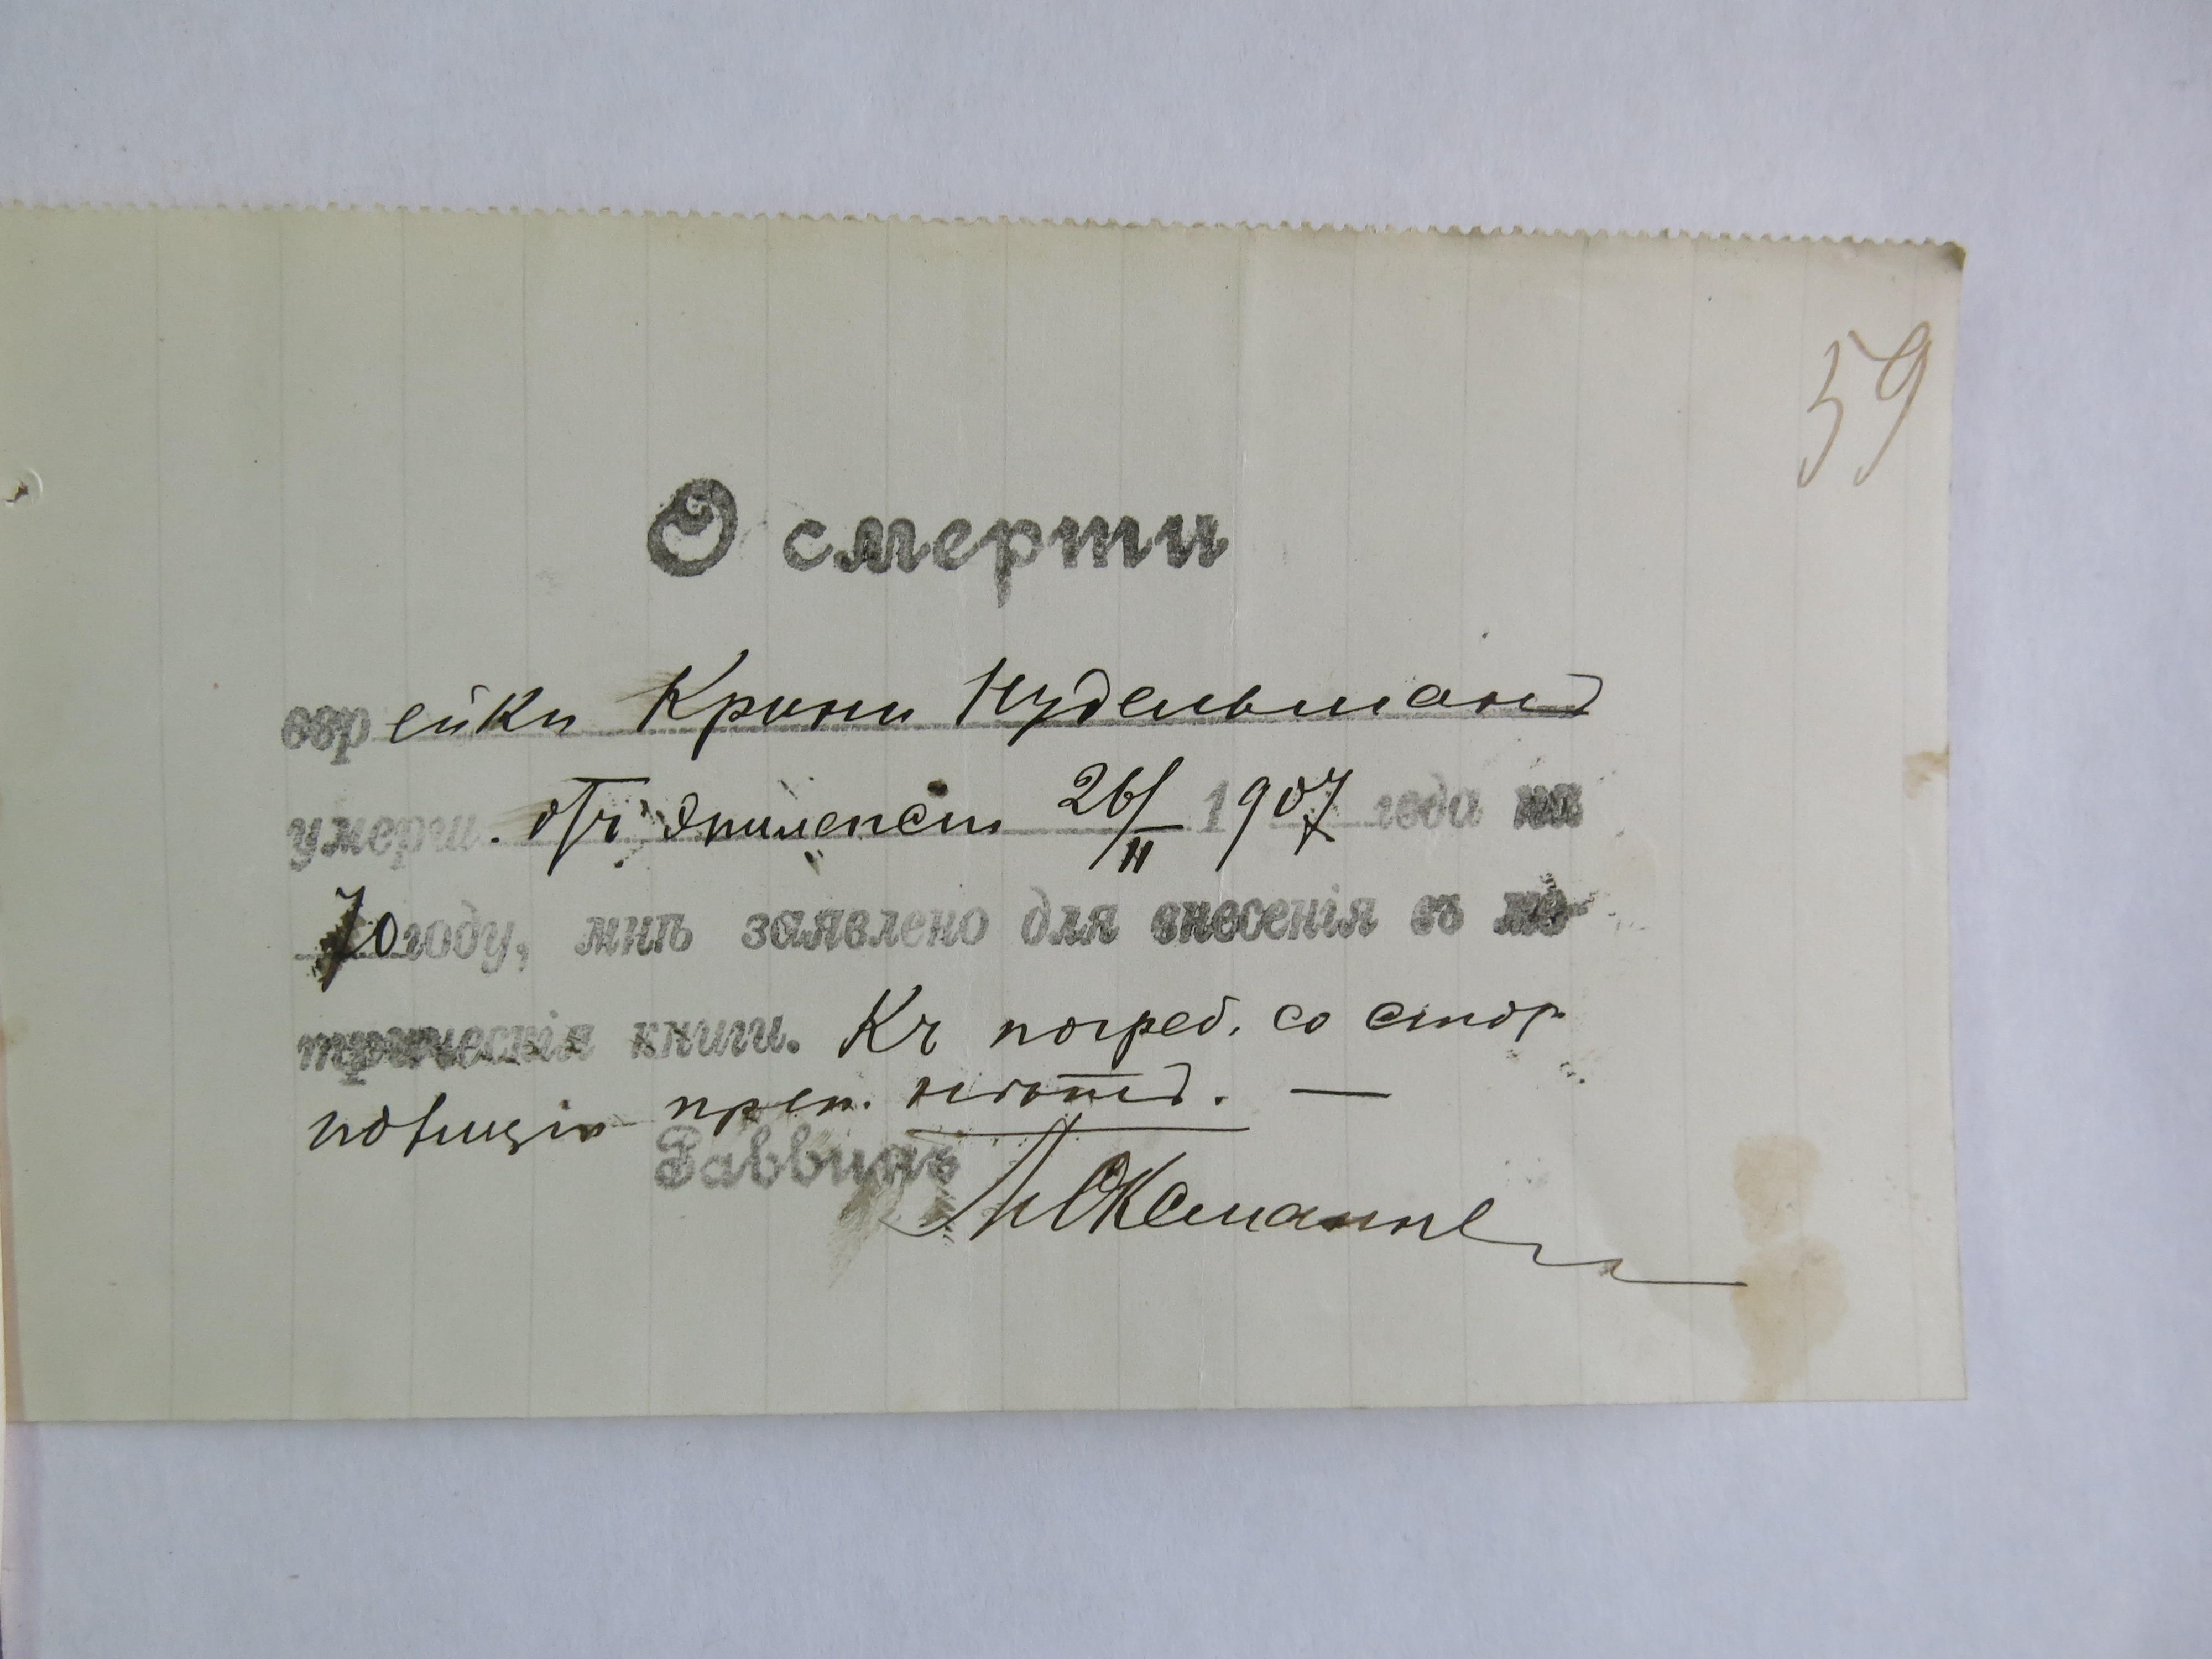 59
О смерти
еврейки Крини Нудельманъ
умерш. отъ эпилепсіи 26/II 1907 года на
70 году, мнѣ заявлено для внесенія въ ме-
трическія книги. Къ погреб. со стор.
полиціи преп. нѣтъ. —
Раввинъ